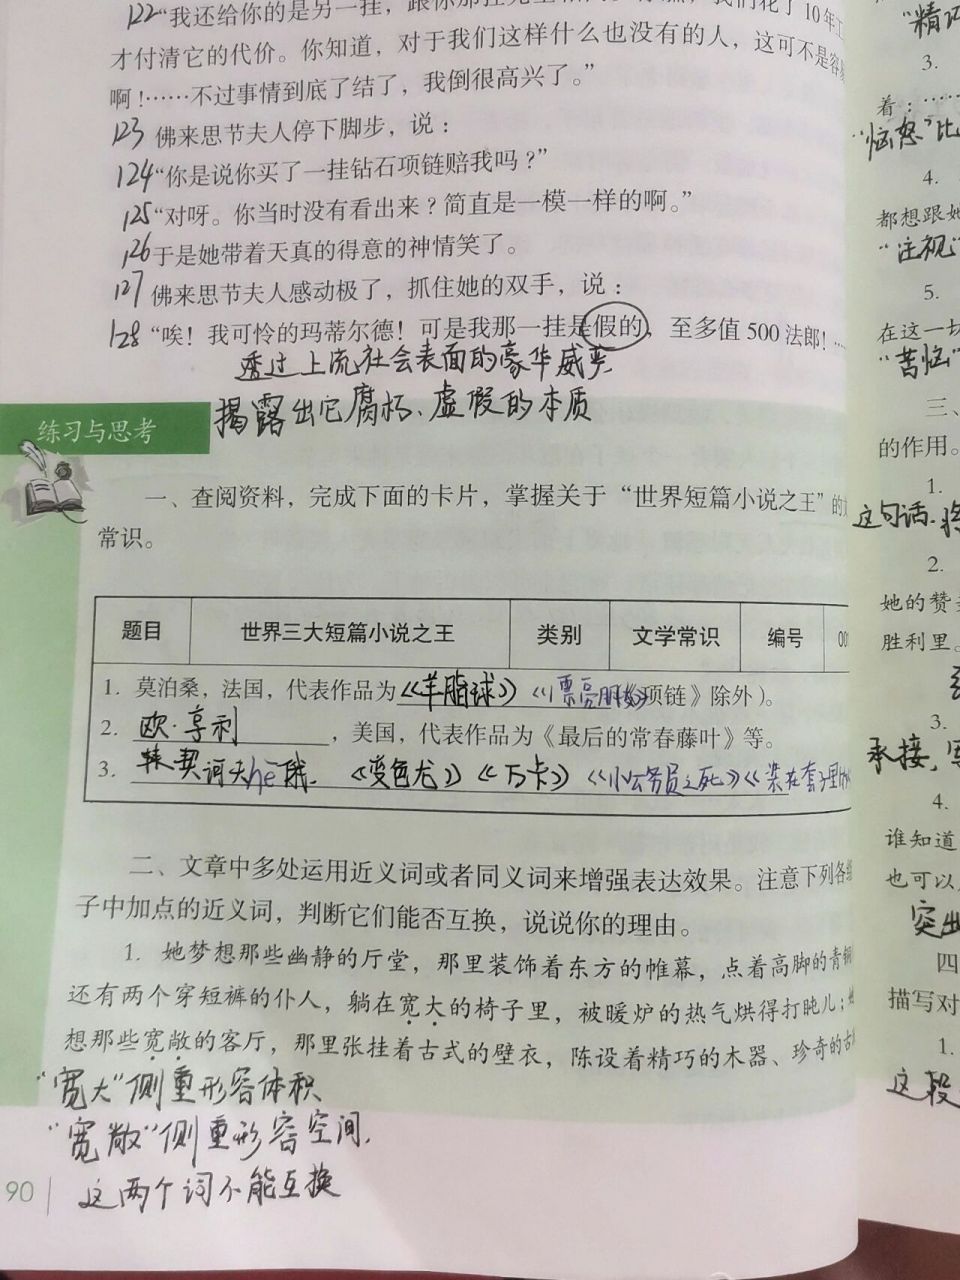 122“我还给你的是另一挂，跟你那挂完全相同。
我们花了10年工
才付清它的代价。你知道，对于我们这样什么也没有的人，这可不是容易
啊！……不过事情到底了结了，我倒很高兴了。”
123 佛来思节夫人停下脚步，说：
124“你是说你买了一挂钻石项链赔我吗？”
125“对呀。你当时没有看出来？简直是一模一样的啊。”
126于是她带着天真的得意的神情笑了。
127 佛来思节夫人感动极了，抓住她的双手，说：
128“唉！我可怜的玛蒂尔德！可是我那一挂是假的，至多值500法郎！…
透过上流社会表面的豪华威严
揭露出它腐朽、虚假的本质
练习与思考
一、查阅资料，完成下面的卡片，掌握关于“世界短篇小说之王”的文
常识。
题目 世界三大短篇小说之王 类别 文学常识 编号 00
1. 莫泊桑，法国，代表作品为《羊脂球》《漂亮朋友》项链》除外）。
2. 欧·亨利，美国，代表作品为《最后的常春藤叶》等。
3. 契诃夫 hē 俄. 《变色龙》《万卡》《小公务员之死》《装在套子里
二、文章中多处运用近义词或者同义词来增强表达效果。注意下列各组
子中加点的近义词，判断它们能否互换，说说你的理由。
1. 她梦想那些幽静的厅堂，那里装饰着东方的帷幕，点着高脚的青铜
还有两个穿短裤的仆人，躺在宽大的椅子里，被暖炉的热气烘得打盹儿；她
想那些宽敞的客厅，那里张挂着古式的壁衣，陈设着精巧的木器、珍奇的古
“宽大”侧重形容体积
“宽敞”侧重形容空间.
这两个词不能互换
90
“精巧
3.
着：……
“恼怒”比
4.
都想跟她
“注视
5.
在这一切
“苦恼”
三、
的作用。
1.
这句话.
2.
她的赞美
胜利里。
3.
承接，
4.
谁知道
也可以
突出
四
描写对
1.
这段